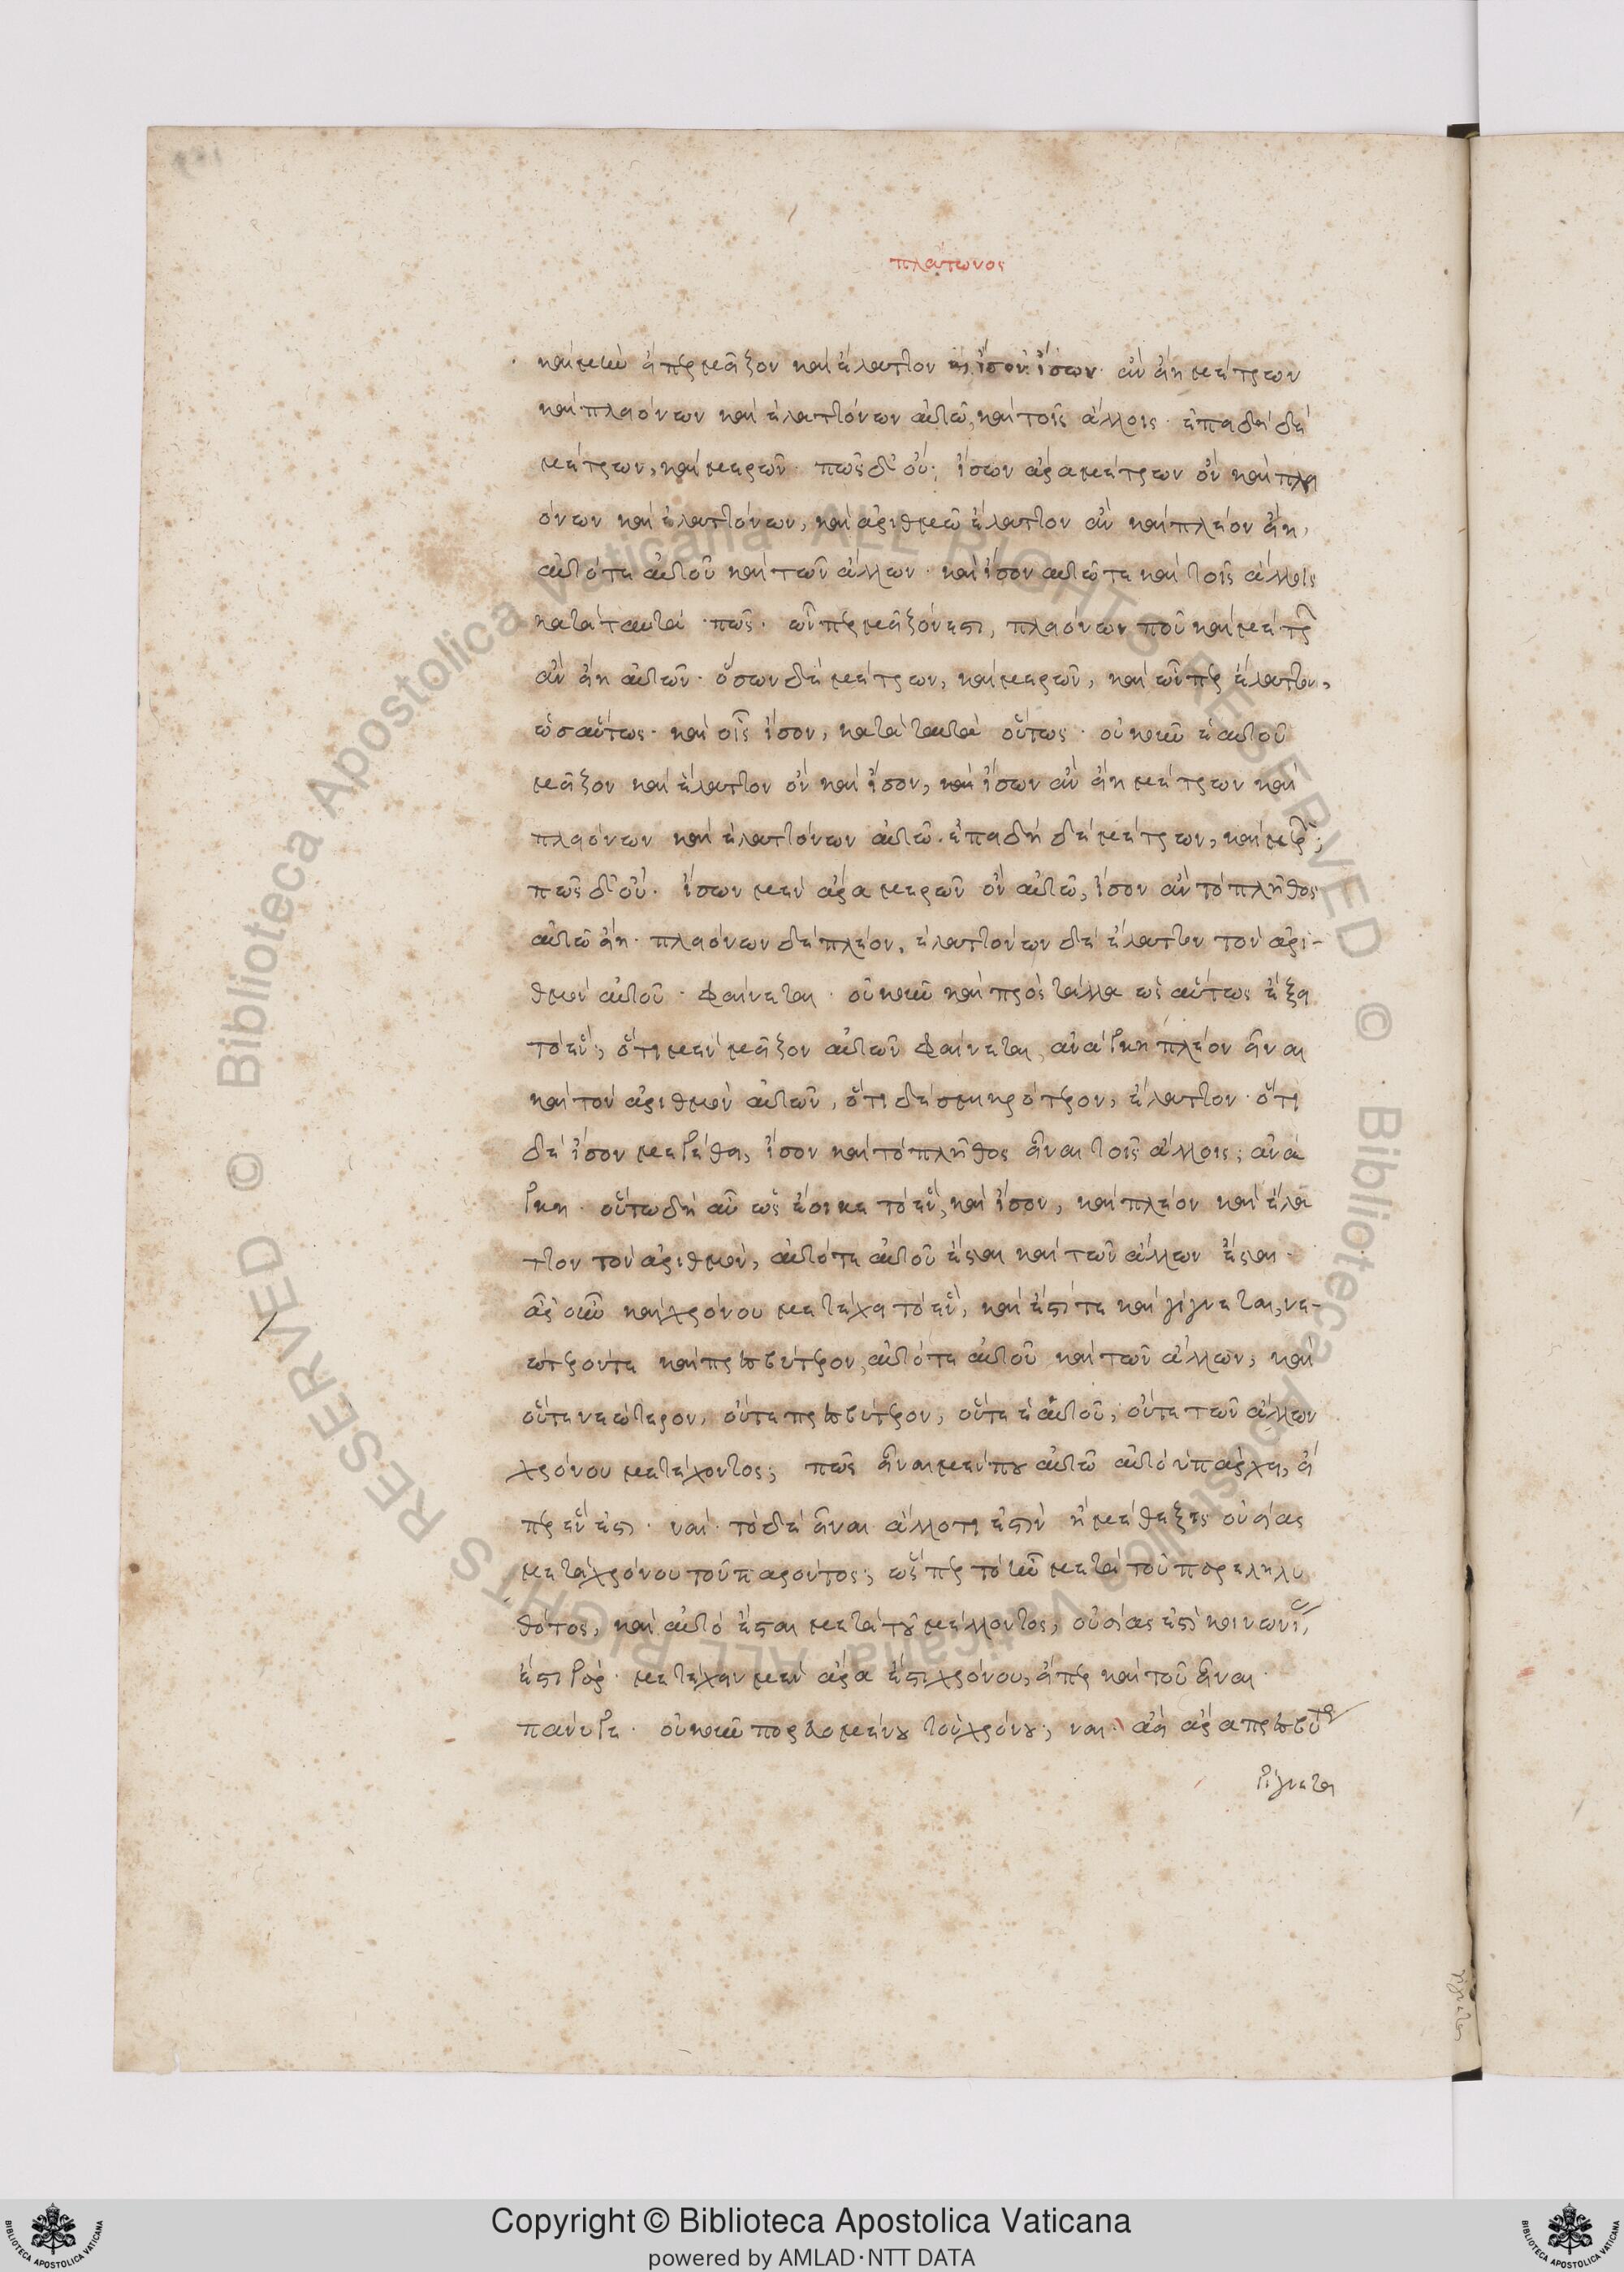 πλάτωνος
καὶ μὴν εἴπερ μεῖζον καὶ ἔλαττον καὶ ἴσον· ἴσων ἂν εἴη μέτρων
καὶ πλειόνων καὶ ἐλαττόνων αὐτῶ, καὶ τοῖς ἄλλοις· ἐπειδὴ δὲ
μέτρων, καὶ μερῶν· πῶς δ' οὔ; ἴσων ἄρα μέτρων ὂν καὶ πλει
όνων καὶ ἐλαττόνων, καὶ ἀριθμῶ ἔλαττον ἂν καὶ πλέον εἴη,
αὐτό τε αὑτοῦ καὶ τῶν ἄλλων· καὶ ἴσον αὑτῶ τε καὶ τοῖς ἄλλοις
κατὰ ταὐτά· πῶς· ὧνπερ μεῖζόν ἐστι, πλειόνων που καὶ μέτρων
ἂν εἴη αὐτῶν· ὅσων δὲ μέτρων, καὶ μερῶν, καὶ ὧνπερ ἔλαττον,
ὡσαύτως· καὶ οἷς ἴσον, κατὰ ταὐτὰ οὕτως· οὐκοῦν ἑαυτοῦ
μεῖζον καὶ ἔλαττον ὂν καὶ ἴσον, καὶ ἴσων ἂν εἴη μέτρων καὶ
πλειόνων καὶ ἐλαττόνων αὑτῶ· ἐπειδὴ δὲ μέτρων, καὶ μερῶν;
πῶς δ' οὔ· ἴσων μὲν ἄρα μερῶν ὂν αὑτῶ, ἴσον ἂν τὸ πλῆθος
αὑτῶ εἴη· πλειόνων δὲ πλέον, ἐλαττόνων δὲ ἔλαττον τὸν ἀρι-
θμὸν αὑτοῦ· φαίνεται· οὐκοῦν καὶ πρὸς τἄλλα ὡσαύτως ἕξει
τὸ ἕν; ὅτι μὲν μεῖζον αὐτῶν φαίνεται, ἀνάγκη πλέον εἶναι
καὶ τὸν ἀριθμὸν αὐτῶν, ὅτι δὲ σμικρότερον, ἔλαττον· ὅτι
δὲ ἴσον μεγέθει, ἴσον καὶ τὸ πλῆθος εἶναι τοῖς ἄλλοις; ἀνά
γκη· οὕτω δὴ αὖ ὡς ἔοικε τὸ ἕν, καὶ ἴσον, καὶ πλέον καὶ ἔλα
ττον τὸν ἀριθμὸν, αὐτό τε αὑτοῦ ἔσται καὶ τῶν ἄλλων ἔσται·
ἆρ' οὖν καὶ χρόνου μετέχει τὸ ἕν, καὶ ἐστί τε καὶ γίγνεται, νε-
ώτερόν τε καὶ πρεσβύτερον, αὐτό τε αὑτοῦ καὶ τῶν ἄλλων, καὶ
οὔτε νεώτερον, οὔτε πρεσβύτερον, οὔτε ἑαυτοῦ, οὔτε τῶν ἄλλων
χρόνου μετέχοντος; πῶς εἶναι μέν που αὐτῶ αὐτὸ ὑπάρχει, εἴ
περ ἕν ἐστι· ναί· τὸ δὲ εἶναι ἄλλο τι ἐστὶν ἢ μέθεξις οὐσίας
μετὰ χρόνου τοῦ παρόντος; ὥσπερ τὸ ἦν μετὰ τοῦ παρεληλυ
θότος, καὶ αὐτὸ ἔσται μετὰ τοῦ μέλλοντος, οὐσίας ἐστὶ κοινωνία,
ἔστι γάρ· μετέχειν μὲν ἄρα ἔστι χρόνου, εἴπερ καὶ τοῦ εἶναι·
πάνυ γε· οὐκοῦν πορευομένου τοῦ χρόνου; ναι· ἀεὶ ἄρα πρεσβύτερον
γίγνεται
Copyright © Biblioteca Apostolica Vaticana
powered by AMLAD·NTT DATA